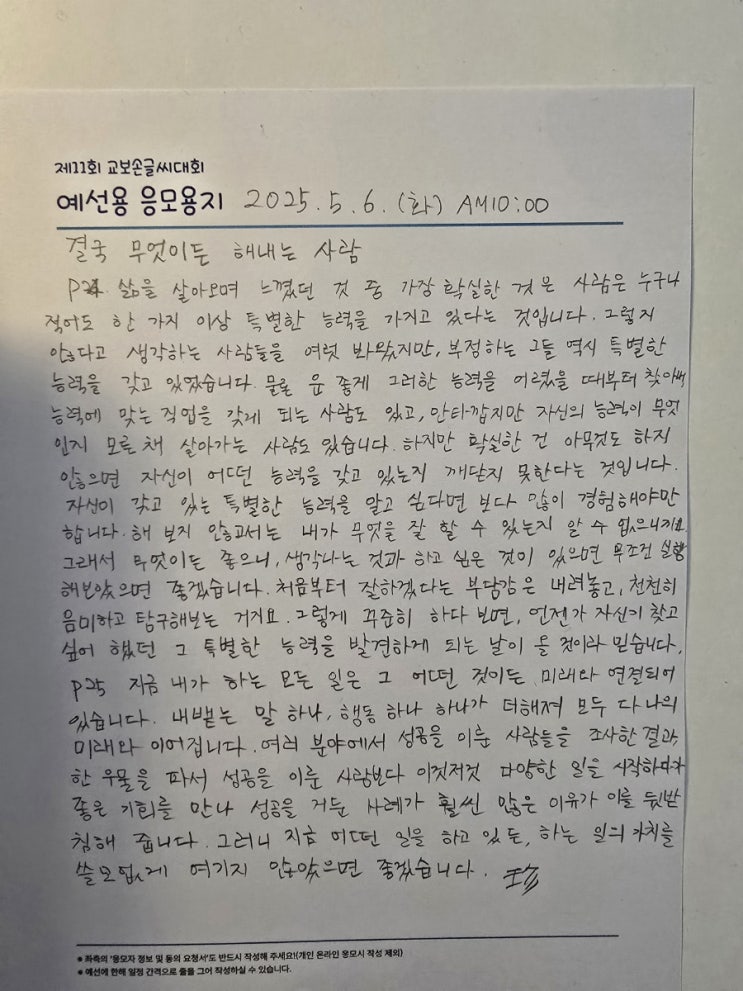 제11회 교보손글씨대회
예선용 응모용지 2025.5.6.(화) AM10:00
결국 무엇이든 해내는 사람
P24. 삶을 살아오며 느꼈던 것 중 가장 확실한 것은 사람은 누구나
적어도 한 가지 이상 특별한 능력을 가지고 있다는 것입니다. 그렇지
않다고 생각하는 사람들을 여럿 봐왔지만, 부정하는 그들 역시 특별한
능력을 갖고 있었습니다. 물론 운 좋게 그러한 능력을 어렸을 때부터 찾아내
능력에 맞는 직업을 갖게 되는 사람도 있고, 안타깝지만 자신의 능력이 무엇
인지 모른 채 살아가는 사람도 있습니다. 하지만 확실한 건 아무것도 하지
않으면 자신이 어떤 능력을 갖고 있는지 깨닫지 못한다는 것입니다.
자신이 갖고 있는 특별한 능력을 알고 싶다면 보다 많이 경험해야만
합니다. 해 보지 않고서는 내가 무엇을 잘 할 수 있는지 알 수 없으니까요
그래서 무엇이든 좋으니, 생각나는 것과 하고 싶은 것이 있으면 무조건 실행
해보았으면 좋겠습니다. 처음부터 잘하겠다는 부담감은 내려놓고, 천천히
음미하고 탐구해보는 거지요. 그렇게 꾸준히 하다 보면, 언젠가 자신이 찾고
싶어 했던 그 특별한 능력을 발견하게 되는 날이 올 것이라 믿습니다.
P25 지금 내가 하는 모든 일은 그 어떤 것이든 미래와 연결되어
있습니다. 내뱉는 말 하나, 행동 하나 하나가 더해져 모두 다 나의
미래와 이어집니다. 여러 분야에서 성공을 이룬 사람들을 조사한 결과,
한 우물을 파서 성공을 이룬 사람보다 이것저것 다양한 일을 시작하다가
좋은 기회를 만나 성공을 거둔 사례가 훨씬 많은 이유가 이를 뒷받
침해 줍니다. 그러니 지금 어떤 일을 하고 있든, 하는 일의 가치를
쓸모없게 여기지 않았으면 좋겠습니다.
● 좌측의 '응모자 정보 및 동의 요청서'도 반드시 작성해 주세요!(개인 온라인 응모시 작성 제외)
● 예선에 한해 일정 간격으로 줄을 그어 작성하실 수 있습니다.